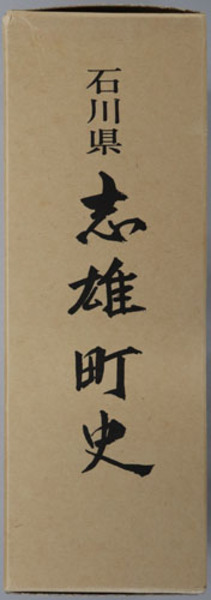 石川県
志雄町史